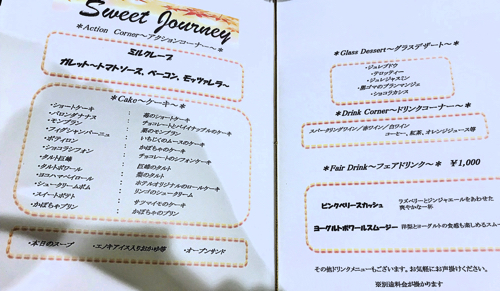 Sweet Journey
＊Action Corner～アクションコーナー～＊
ミルクレープ
ガレット～トマトソース、ベーコン、モッツァレラ～
＊Cake～ケーキ～＊
・ショートケーキ ： 苺のショートケーキ
・バロンダナナス ： チョコレートとパイナップルのケーキ
・モンブラン ： 栗のモンブラン
・フィグシャンパーニュ ： いちじくのムースのケーキ
・ポティロン ： かぼちゃのケーキ
・ショコラシフォン ： チョコレートのシフォンケーキ
・タルト巨峰 ： 巨峰のタルト
・タルトポワール ： 梨のタルト
・ヨコハマベイロール ： ホテルオリジナルのロールケーキ
・シュークリームポム ： リンゴのシュークリーム
・スイートポテト ： サツマイモのケーキ
・かぼちゃプリン ： かぼちゃのプリン
・本日のスープ ・エノキアイス入りおかゆ等 ・オープンサンド
＊Glass Dessert～グラスデザート～＊
・ジュレブドウ
・テロッティー
・ジュレジャスミン
・黒ゴマのブランマンジェ
・ショコラカシス
＊Drink Corner～ドリンクコーナー～＊
スパークリングワイン／赤ワイン／白ワイン／
コーヒー、紅茶、オレンジジュース等
＊Fair Drink～フェアドリンク～＊ ￥1,000
ピンクベリースカッシュ ラズベリーとジンジャエールをあわせた
爽やかな一杯
ヨーグルトポワールスムージー 洋梨とヨーグルトの食感も楽しめるスム
その他ドリンクメニューもございます。お気軽にお声掛けください。
※別途料金が掛かります